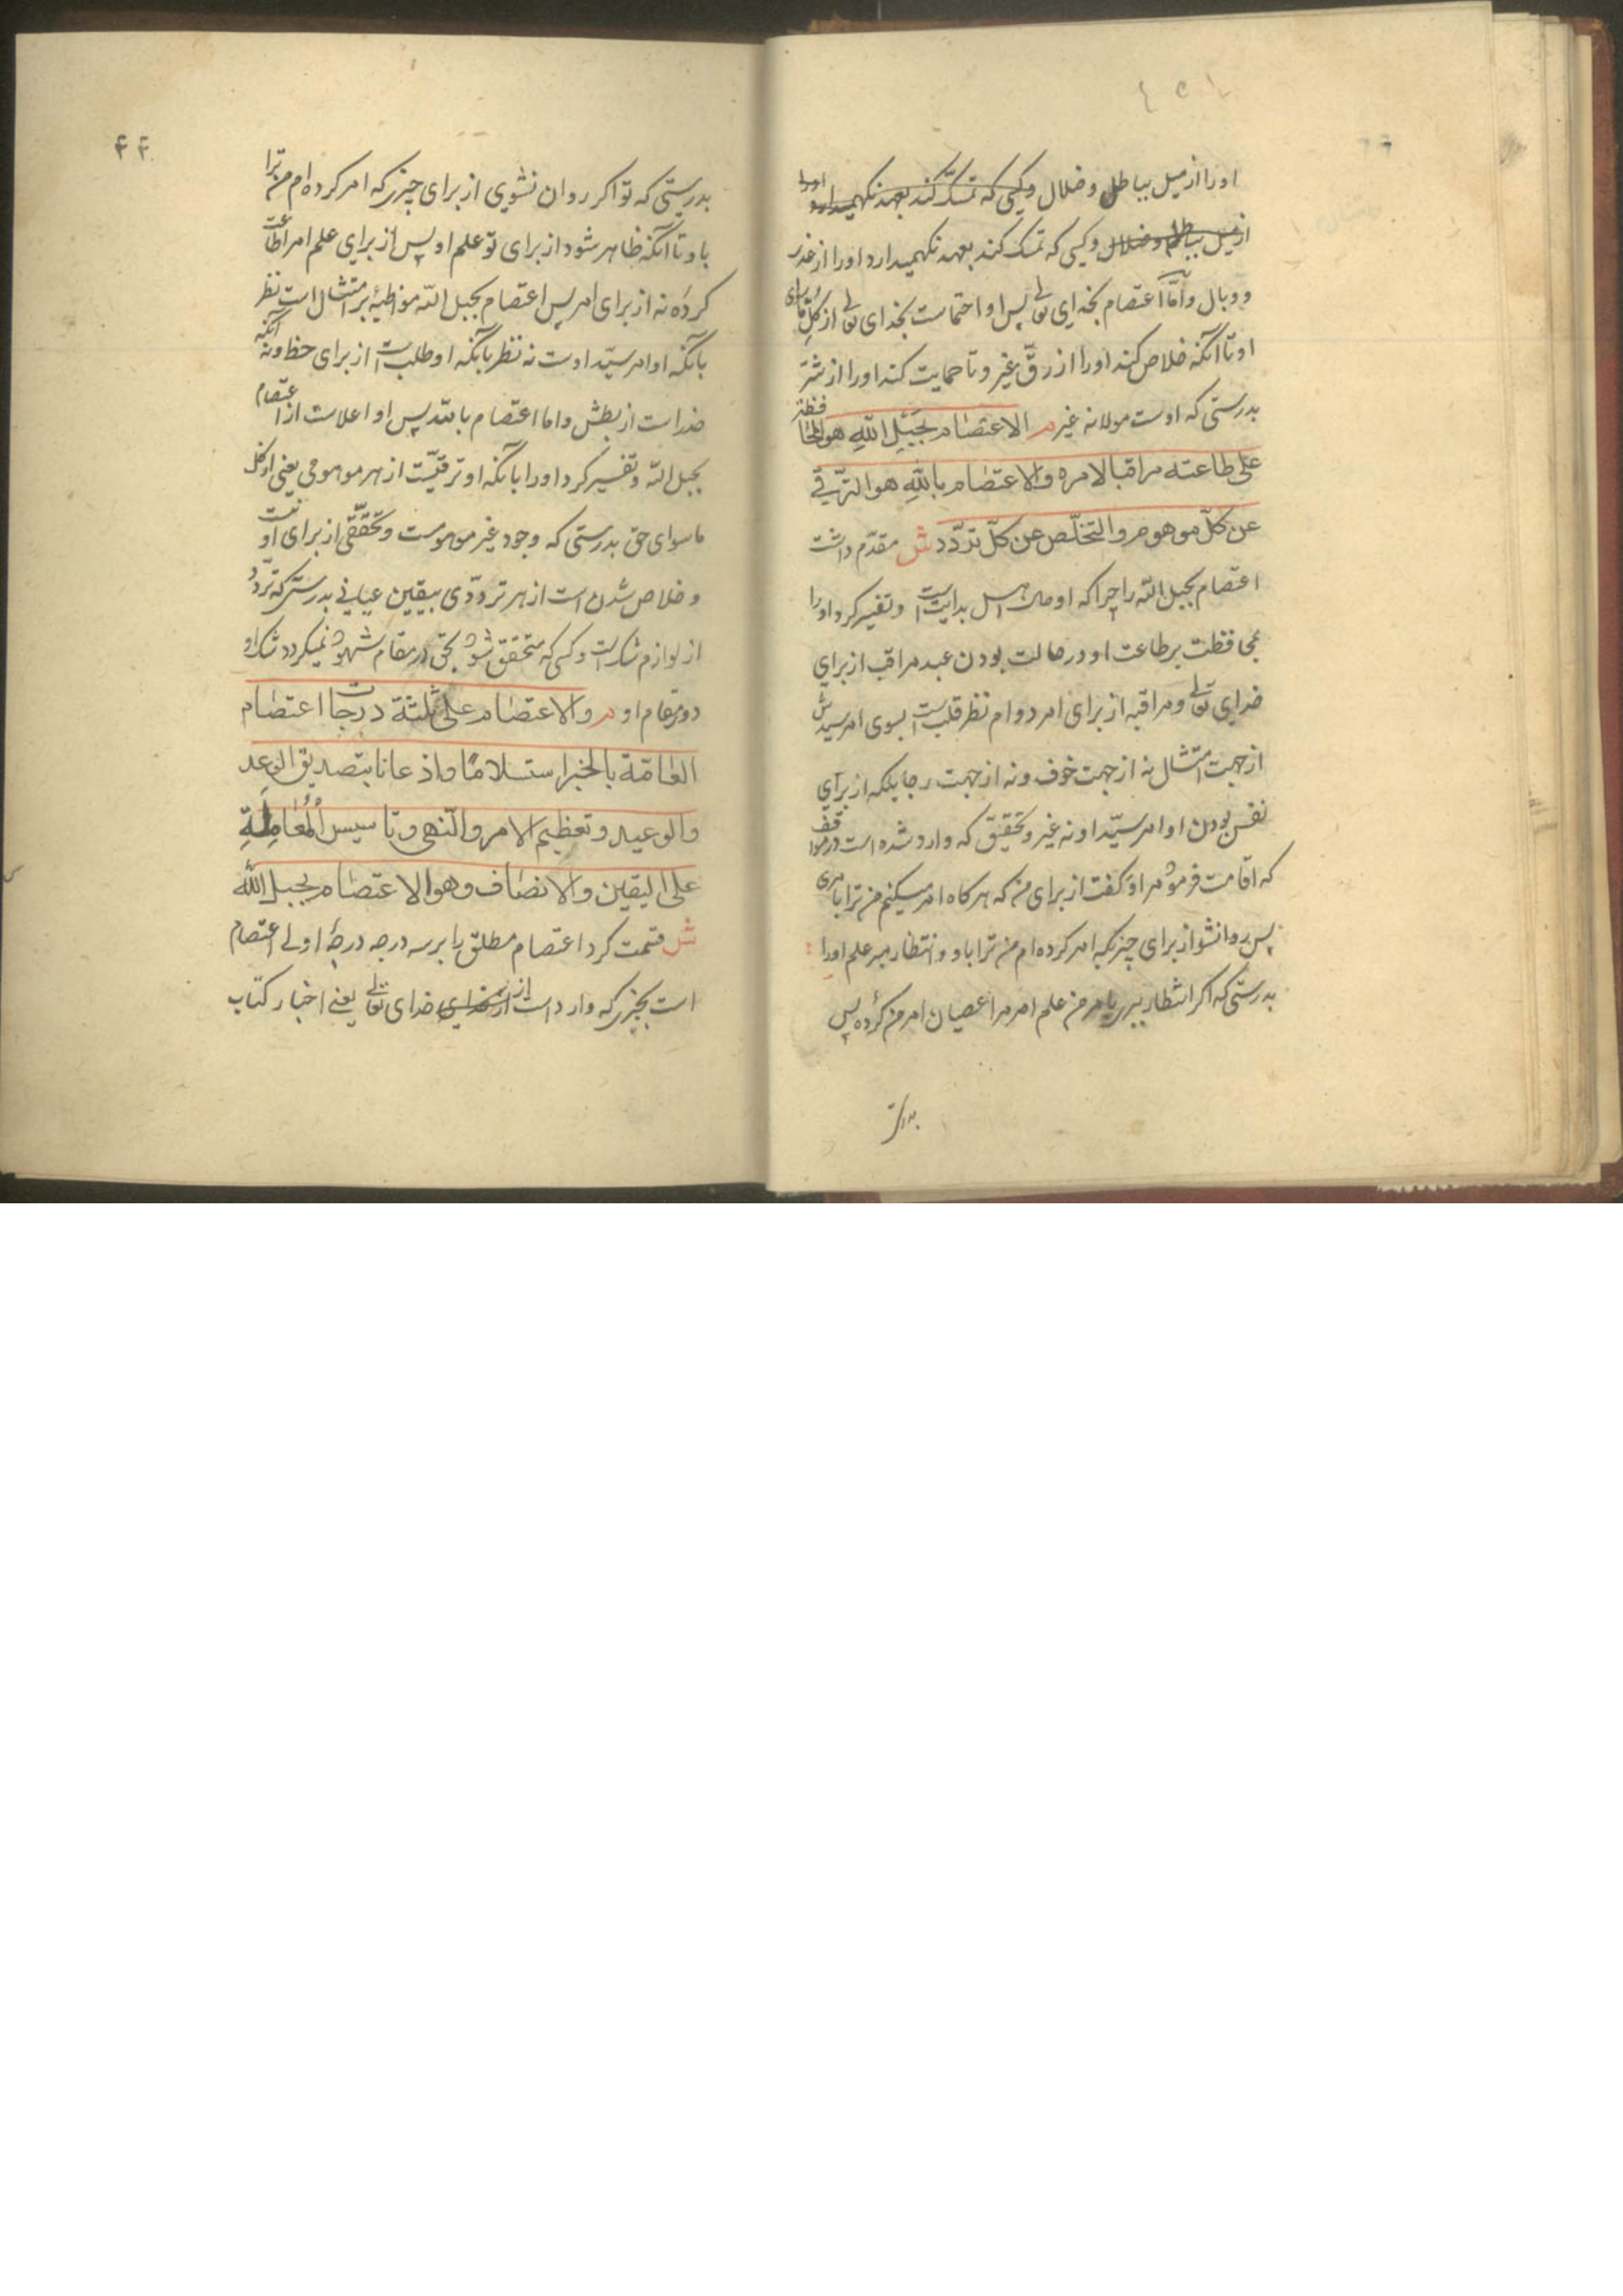 اورا از میل بباطل و ضلال وکسی که تمسک کند بعهد نکهمیدارد اورا
از میل بباطل و ضلال وکسی که تمسک کند بعهد نکهمیدارد اورا از غدر
و وبال و امّا اعتصام بخدای تعالی پس او احتماست بخدای تعالی از کلّ ماسوای
او تا آنکه خلاص کند اورا از رقّ غیر و تا حمایت کند اورا از شرّ
بدرستی که اوست مولا نه غیر م الاعتصام بحبل الله هو المحافظة
علی طاعته مراقبا لامره والاعتصام بالله هو الترقّی
عن کلّ موهوم والتخلّص عن کلّ تردّد ش مقدّم داشت
اعتصام بحبل الله را چرا که او حال اهل بدایت است و تفسیر کرد اورا
بمحافظت بر طاعت او در حالت بودن عبد مراقب از برای
خدای تعالی و مراقبه از برای امر دوام نظر قلب است بسوی امر سیدش
از جهت امتثال نه از جهت خوف و نه از جهت رجا بلکه از برای
نفس بودن او امر سیّد او نه غیر و بتحقیق که وارد شده است در مواقف
که اقامت فرمود مرا و کفت از برای من که هرکاه امر میکنم من ترا بامری
پس روانشو از برای چیزیکه امر کرده ام من ترا باو و انتظار مبر علم اورا
بدرستی که اکر انتظار ببری بامر من علم امر مرا عصیان امر من کرده پس
بدرستی
۴۴
بدرستی که تو اکر روان نشوی از برای چیزی که امر کرده ام من ترا
باو تا آنکه ظاهر شود از برای تو علم او پس از برای علم امر اطاعت
کرده نه از برای امر پس اعتصام بحبل الله مواظبة بر امتثال است نظر
بآنکه او امر سیّد اوست نه نظر بآنکه او طلب است از برای حظ و نه آنکه
حذر است از بطش و اما اعتصام بالله پس او اعلاست از اعتصام
بحبل الله و تفسیر کرد اورا بآنکه او ترقیّست از هر موهومی یعنی از کل
ماسوای حق بدرستی که وجود غیر موهومست و تحقّقی از برای او نیست
و خلاص شدن است از هر تردّدی بیقین عیانی بدرستی که تردّد
از لوازم شک است و کسی که متحقق شود بحق در مقام شهود نمیکردد شک او
در مقام او م والاعتصام علی ثلثة درجات اعتصام
العامّة بالخبر استسلامًا واذعانا بتصدیق الوعد
والوعید وتعظیم الامر والنهی وتاسیس المعاملة
علی الیقین والانصاف وهو الاعتصام بحبل الله
ش قسمت کرد اعتصام مطلق را بر سه درجه درجهٔ اولی اعتصام
است بچیزی که وارد است از نزد خدای تعالی یعنی اخبار کتاب